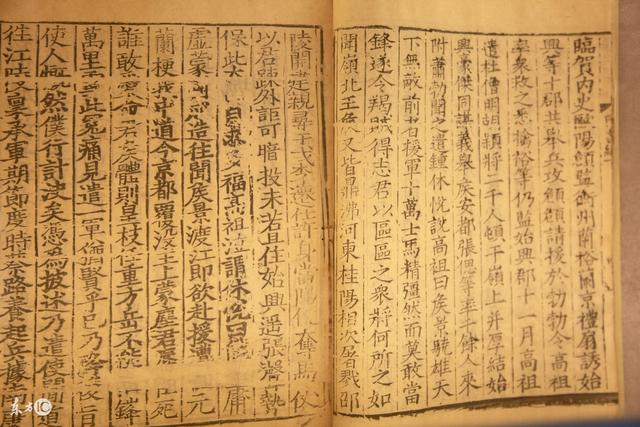 臨賀內史歐陽頠監衡州蘭裕蘭京禮扇誘始
興等十郡共舉兵攻頠頠請援於勃勃令高祖
率衆救之悉擒裕等仍監始興郡十一月高祖
遣杜僧明胡穎將二千人頓于嶺上并厚結始
興豪傑同謀義舉侯安都張偲等率千餘人來
附蕭勃聞之遣鍾休悅說高祖曰侯景驍雄天
下無敵前者援軍十萬士馬精彊然而莫敢當
鋒遂令羯賊得志君以區區之衆將何所之如
聞嶺北王侯又皆鼎沸河東桂陽相次屠戮邵
陵開建親尋干戈李遷仕許身當陽便奪馬仗
以君疎外詎可暗投未若且住始興遙張聲勢
保此太山自求多福高祖泣謂休悅曰僕本庸
虛蒙國成造往聞侯景渡江即欲赴援遭值元
蘭梗我中道今京都覆沒主上蒙塵君辱臣死
誰敢愛命君侯體則皇枝任重方岳不能摧鋒
萬里雪此冤痛見遣一軍猶賢乎已乃降後旨
使人慨然僕行計決矣憑爲披述乃遣使間道
往江陵稟承軍期節度時蔡路養起兵據南